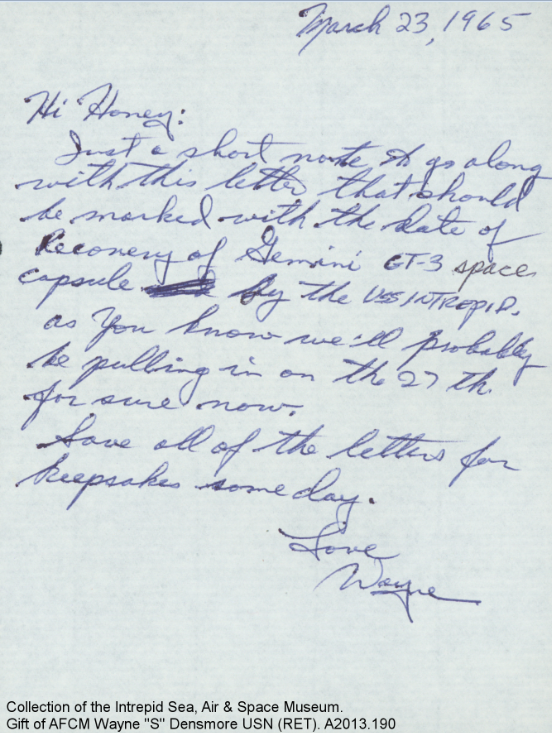 March 23, 1965
Hi Honey:
Just a short note to go along
with this letter that should
be marked with the date of
Recovery of Gemini GT-3 space
capsule by the USS INTREPID.
as you know we'll probably
be pulling in on the 27 th.
for sure now.
Save all of the letters for
keepsakes some day.
Love
Wayne
Collection of the Intrepid Sea, Air & Space Museum.
Gift of AFCM Wayne "S" Densmore USN (RET). A2013.190